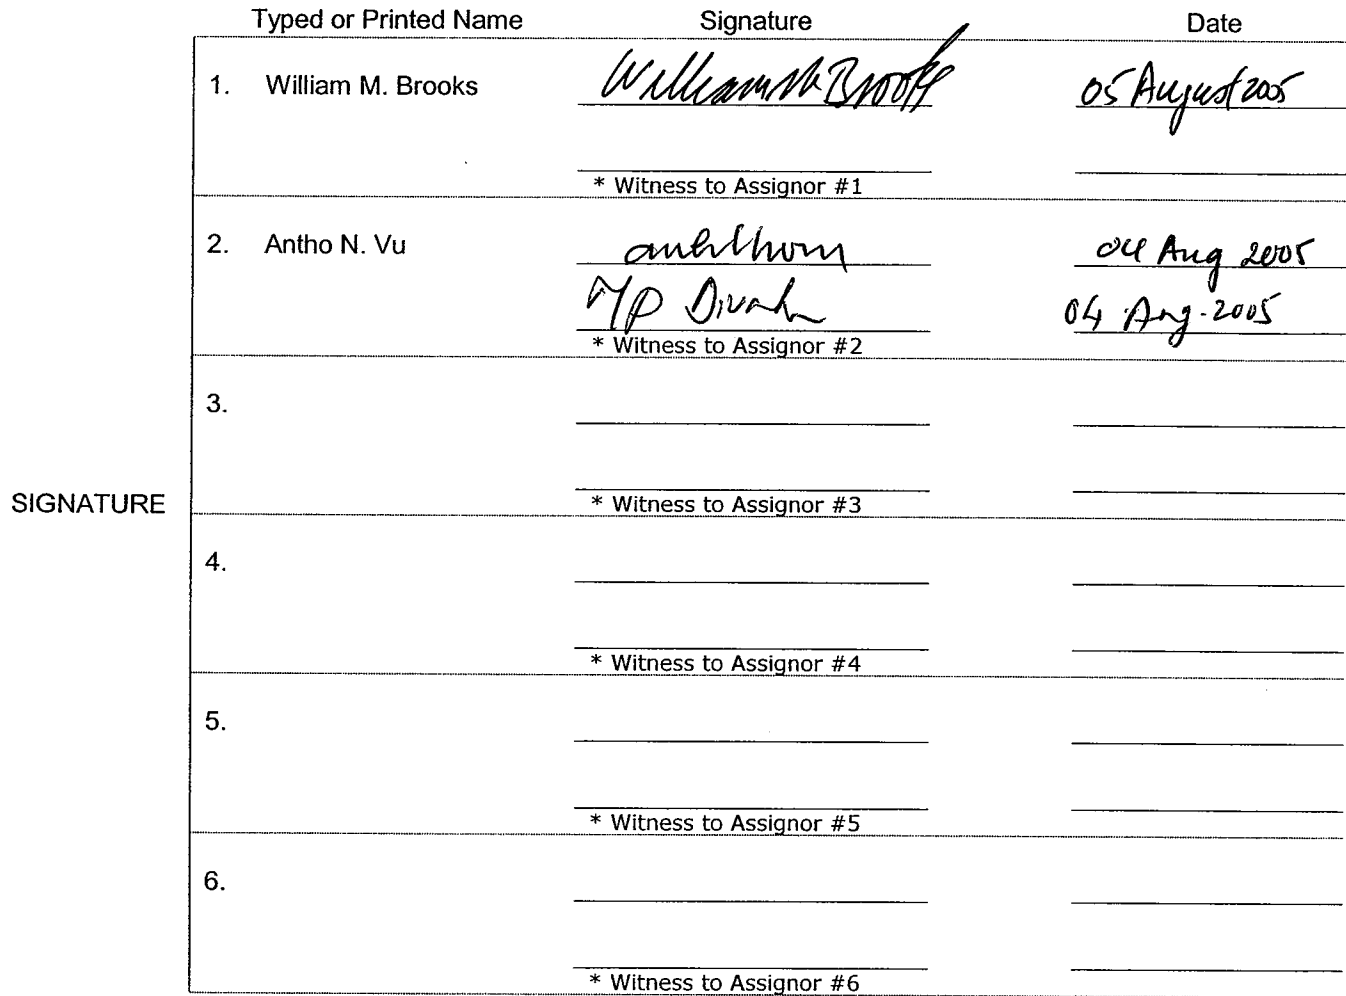 Typed or Printed Name Signature Date
1. William M. Brooks William M Brooks 05 August 2005
* Witness to Assignor #1
2. Antho N. Vu 04 Aug 2005
04 Aug. 2005
* Witness to Assignor #2
3.
SIGNATURE
* Witness to Assignor #3
4.
* Witness to Assignor #4
5.
* Witness to Assignor #5
6.
* Witness to Assignor #6